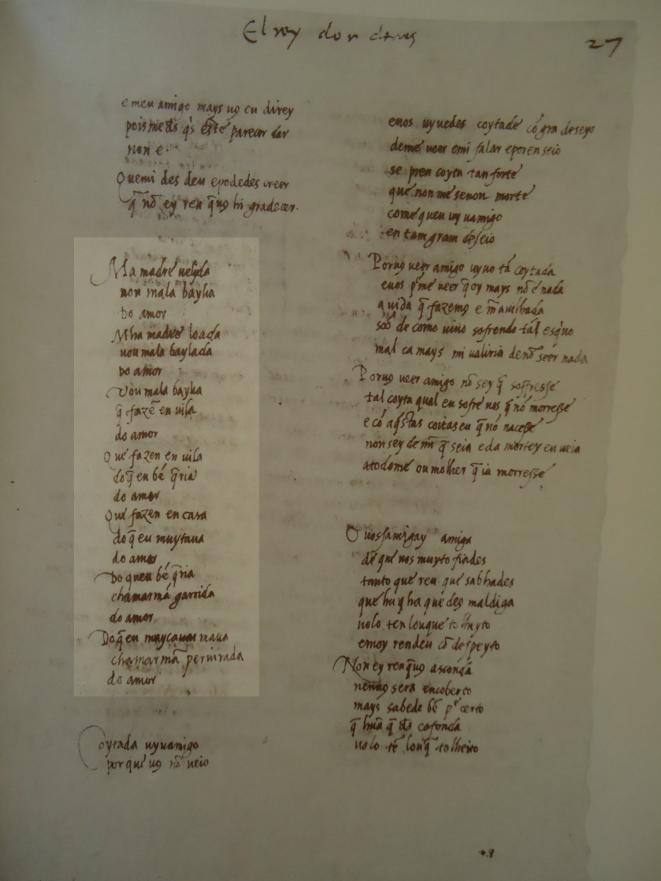 El rey don denis
27
e meu amigo mays uꝯ eu direy
parecer dar
non e
Quemi des deu epodedes creer
q̄ nō ey ren q̄ uꝯ hi gradecer.
Ma madre uelyda
uou mala baylia
Do amor
Mha madre loada
uou mala baylada
Do amor
Vou mala baylia
q̄ fazē en uila
do amor
Que fazen en uila
do q̄ eu bē q̄ria
do amor
Que fazen en casa
do q̄ eu muytaua
do amor
Do queu bē q̄ria
chamarmā garrida
do amor
Do q̄ eu maua
chamarmā periurada
do amor
Coytada uyuamigo
por que uꝯ nō ueio
euos uyuedes coytade cō grā deseio
deme ueer emi falar eporenseio
se pren coyta tan forte
que non me senon morte
come queu uyuamigo
en tam gram deseio
Por uꝯ ueer amigo uyuo tā coytada
mays nō e nada
a uida q̄ fazemꝯ e
de como uiuo sofrendo tal esq̄uo
mal ca mays mi ualiria denō seer nada
Por uꝯ ueer amigo nō sey q̄ sofresse
tal coyta qual eu sofre uos q̄ nō morresse
e cō aq̄stas coitas eu q̄ nō nacesse
non sey de mī q̄ seia e da mortey enueia
atodome ou molher q̄ ia morresse
O uossamigay amiga
de que uos muyto fiades
tanto que reu que sabhades
que hūa que deꝯ maldiga
uolo ten louque tolheyto
e moy rendeu cō despeyto
Non ey ren q̄ uꝯ asconda
nenuꝯ sera encoberto
mays sabede bē por certo
q̄ hūa q̄ deꝯ cofonda
uolo tē louq̄ tolheito